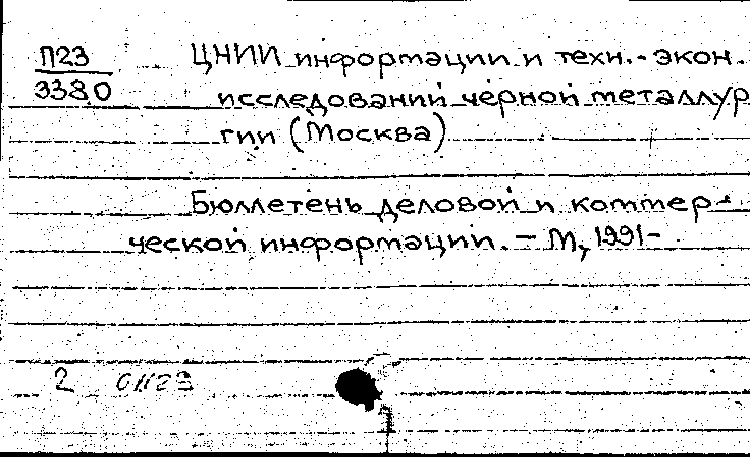 П23 ЦНИИ информации и техн.-экон.
3380 исследований черной металлур
гии (Москва)
Бюллетень деловой и коммер-
ческой информации. – М, 1991-
2